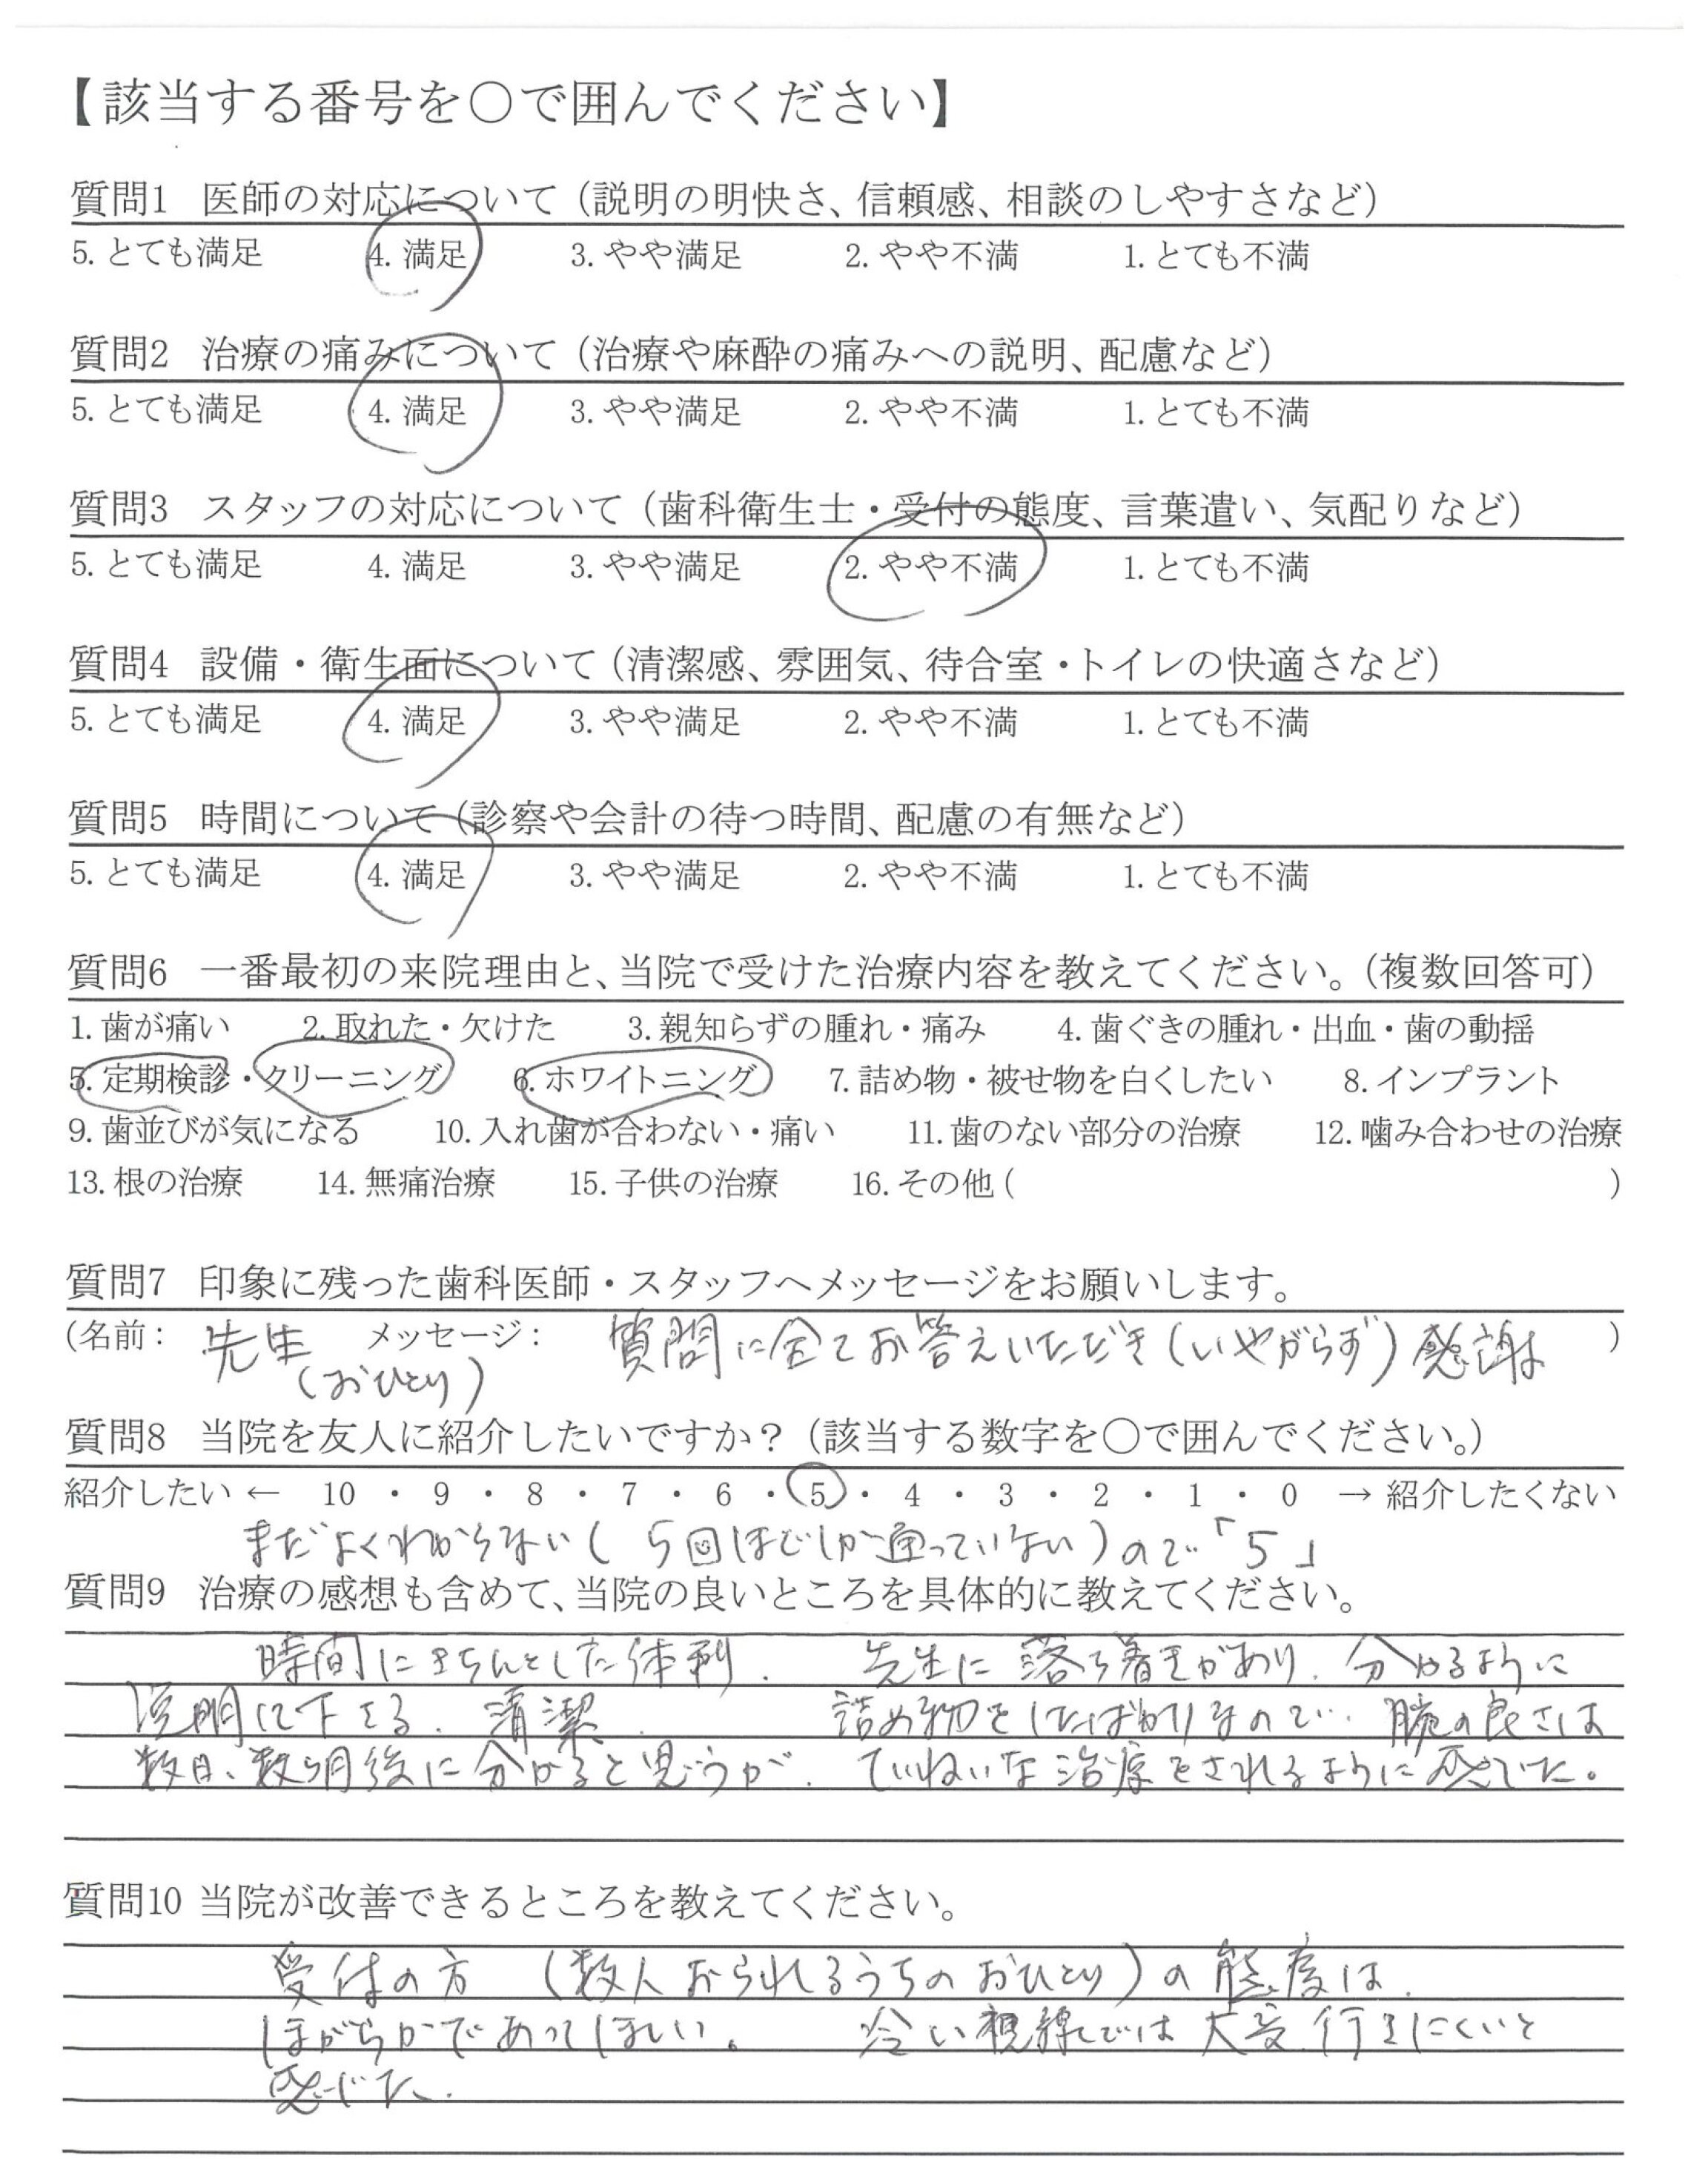 【該当する番号を〇で囲んでください】
質問1 医師の対応について（説明の明快さ、信頼感、相談のしやすさなど）
5. とても満足 4. 満足 3. やや満足 2. やや不満 1. とても不満
質問2 治療の痛みについて（治療や麻酔の痛みへの説明、配慮など）
5. とても満足 4. 満足 3. やや満足 2. やや不満 1. とても不満
質問3 スタッフの対応について（歯科衛生士・受付の態度、言葉遣い、気配りなど）
5. とても満足 4. 満足 3. やや満足 2. やや不満 1. とても不満
質問4 設備・衛生面について（清潔感、雰囲気、待合室・トイレの快適さなど）
5. とても満足 4. 満足 3. やや満足 2. やや不満 1. とても不満
質問5 時間について（診察や会計の待つ時間、配慮の有無など）
5. とても満足 4. 満足 3. やや満足 2. やや不満 1. とても不満
質問6 一番最初の来院理由と、当院で受けた治療内容を教えてください。（複数回答可）
1. 歯が痛い 2. 取れた・欠けた 3. 親知らずの腫れ・痛み 4. 歯ぐきの腫れ・出血・歯の動揺
5. 定期検診・クリーニング 6. ホワイトニング 7. 詰め物・被せ物を白くしたい 8. インプラント
9. 歯並びが気になる 10. 入れ歯が合わない・痛い 11. 歯のない部分の治療 12. 噛み合わせの治療
13. 根の治療 14. 無痛治療 15. 子供の治療 16. その他 ( )
質問7 印象に残った歯科医師・スタッフへメッセージをお願いします。
(名前： 先生 メッセージ： 質問に全てお答えいただき（いやがらず）感謝 )
（おひとり）
質問8 当院を友人に紹介したいですか？（該当する数字を〇で囲んでください。）
紹介したい ← 10 ・ 9 ・ 8 ・ 7 ・ 6 ・ 5 ・ 4 ・ 3 ・ 2 ・ 1 ・ 0 → 紹介したくない
まだよくわからない（5回ほどしか通っていない）ので「5」
質問9 治療の感想も含めて、当院の良いところを具体的に教えてください。
時間にきちんとした体制. 先生に落ち着きがあり. 分かるように
説明して下さる. 清潔. 詰め物をしたばかりなので.. 腕の良さは
数日、数ヶ月後に分かると思うが. ていねいな治療をされるように感じた。
質問10 当院が改善できるところを教えてください。
受付の方 （数人おられるうちのおひとり）の態度は.
ほがらかであってほしい。 冷い視線では大変行きにくいと
感じた.